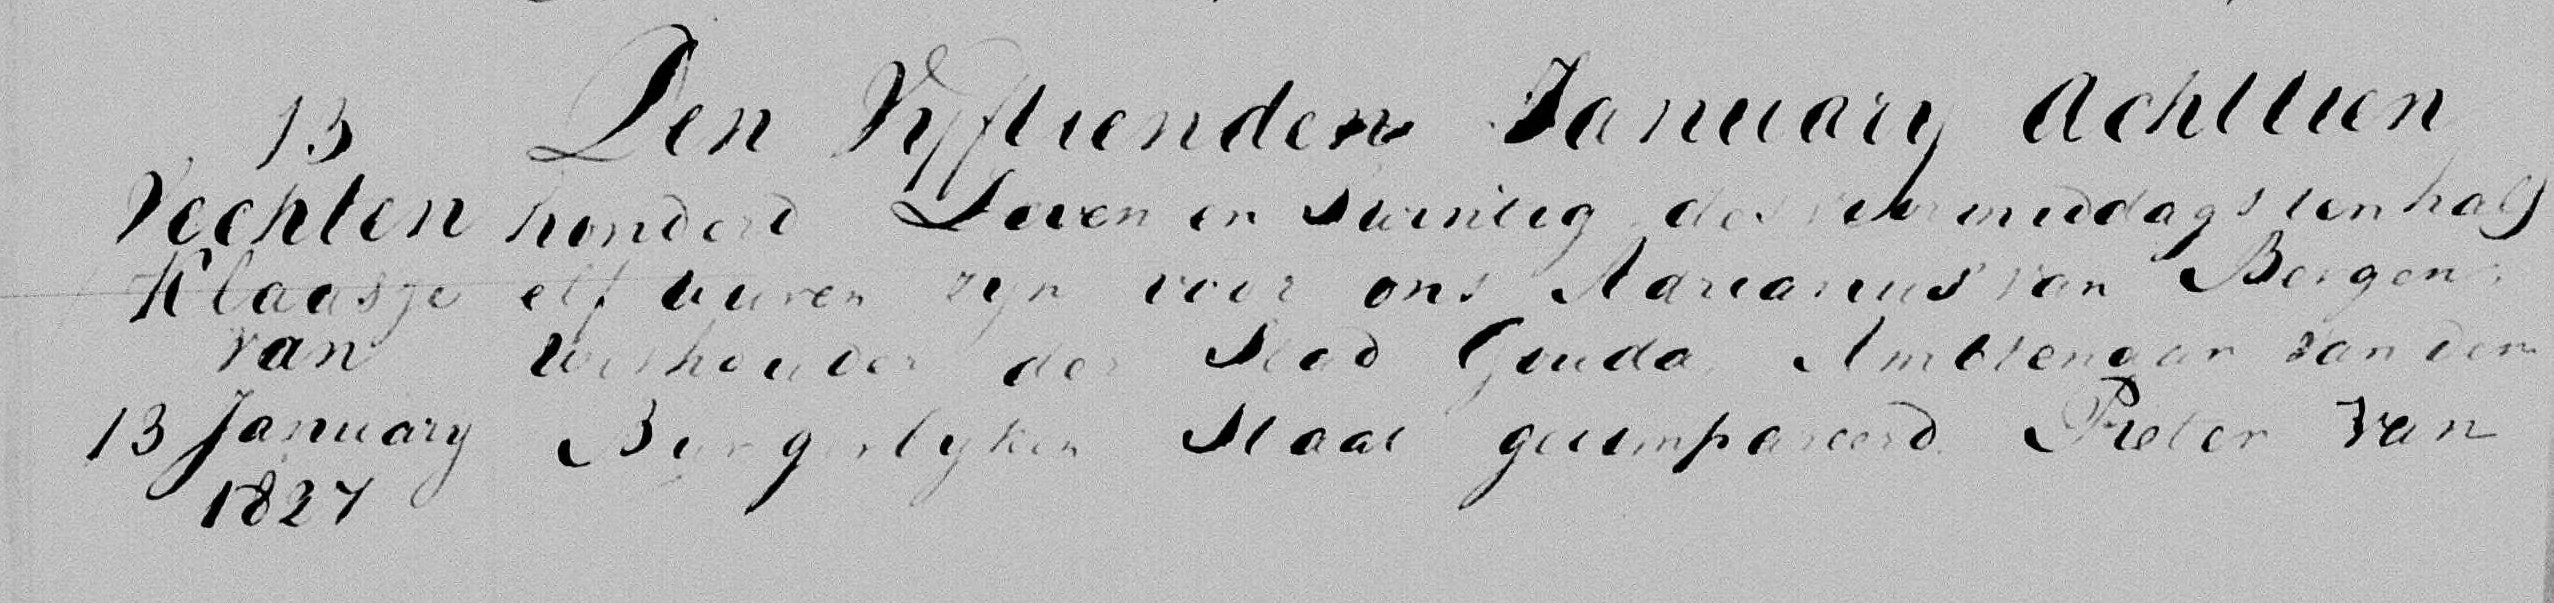 13
Vechten
Klaasje
van
13 January
1827
Den Vyftienden January Achttien
honderd Zeven en Twintig des voormiddags ten half
elf uuren zyn voor ons Adrianus van Bergen
Wethouder der Stad Gouda, Ambtenaar van den
Burgerlyken Staat gecompareerd Pieter van